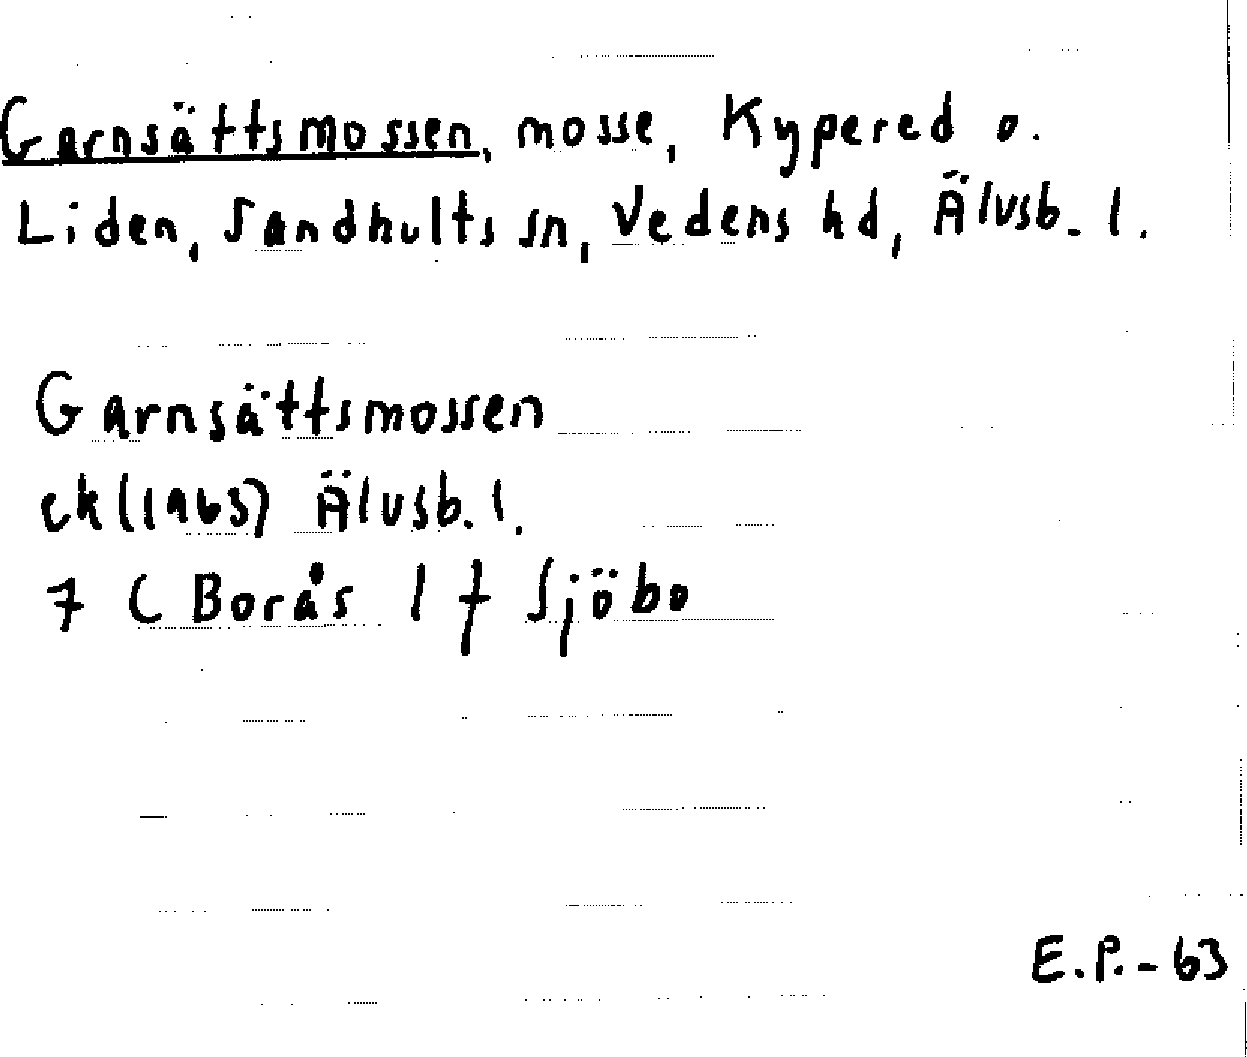 Garnsättsmossen, mosse, Kypered o.
Liden, Sandhults sn, Vedens hd, Älvsb. l.
Garnsättsmossen
ek (1963) Älvsb. l.
7 C Borås 1 f Sjöbo
E.P.-63